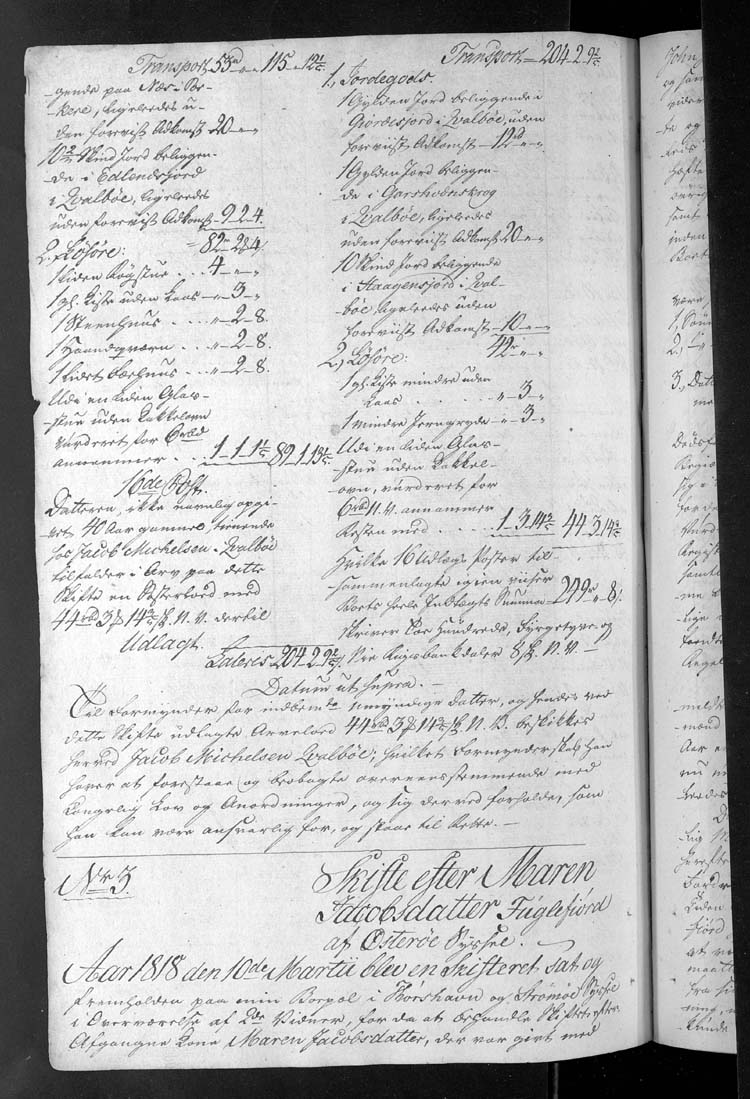 Transport 53 " 115 " 12
gende paa Nær-Ve-
kere, ligeledes u-
den foreviist Adkomst 20 " "
10 Skind Jord beliggen-
de i Edlendsfjord
i Qvalböe, ligeledes
uden foreviist Adkomst 9 2 4
82 2 4
2. Lösöre:
1 liden Rögstue . . 4 " "
1 gl. Kiste uden Laas " 3 "
1 Steenhuus . . . " 2 8.
1 Haandqværn . . " 2 8.
1 lidet bærhuus . " 2 8.
Udi en liden Glas-
stue uden Kakkelovn
vurderet for 6 rbd
annammer . . 1 1 1 89 1 13
16de Post.
Datteren, ikke navnlig opgi-
vet, 40 Aar gammel, tienende
hos Jacob Michelsen i Qvalböe
tilfalder i Arv paa dette
Skifte en Søsterlod med
44 rbd 3 14 ß. N. V. dertil
Udlagt.
Lateris 204 2 9
Transport 204 2 9
1, Jordegods.
1 Gylden Jord beliggende i
Giördesfiord i Qvalböe, uden
foreviist Adkomst 12 " "
1 Gylden Jord beliggen-
de i Garshornskrog
i Qvalböe, ligeledes
uden foreviist Adkomst 20 " "
10 Skind Jord beliggende
i Haagensfjord i Qval-
böe, ligeledes uden
foreviist Adkomst 10 " "
42 " "
2, Lösöre:
1 gl. Kiste mindre uden
Laas . . . . . " 3 "
1 mindre Jerngryde " 3 "
Udi en liden Glas-
stue uden Kakkel-
ovn, vurderet for
6 rbd N. V. annammer
Resten med . . . 1 3 14 44 3 14
Hvilke 16 Udlægs Poster til-
sammenlagte igien viiser
Boets heele Indtægts Summa 249 " 8
skriver Toe Hundrede, Fyrgetyve og
Nie Rigsbankdaler 8 ß. N. V.
Datum ut supra.
Til Formynder for indbemte umyndige Datter, og hendes ved
dette Skifte udlagte Arvelod 44 rbd 3 14 ß. N. V. beskikkes
herved Jacob Michelsen Qvalböe; hvilket Formynderskab han
haver at forestaae og beobagte overeensstemmende med
Kongelig Lov og Anordninger, og sig derved forholde, som
han kan være ansvarlig for, og staae til Rette.
Nr 3.
Skifte efter Maren
Jacobsdatter Fuglefiord
af Österöe Syssel.
Aar 1818 den 10de Martii blev en Skifteret sat og
fremholden paa min Bopæl i Thorshavn og Strömöe Syssel
i Overværelse af 2de Vidner, for da at behandle Skiftet efter
Afgangne Kone Maren Jacobsdatter, der var givt med